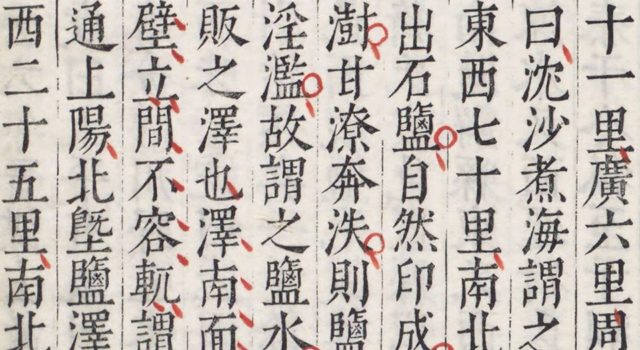 十一里廣六里周
曰沈沙煮海謂之
東西七十里南北
出石鹽自然印成
澍甘潦奔泆則鹽
淫濫故謂之鹽水
販之澤也澤南面
壁立間不容軌謂
通上陽北墍鹽澤
西二十五里南北